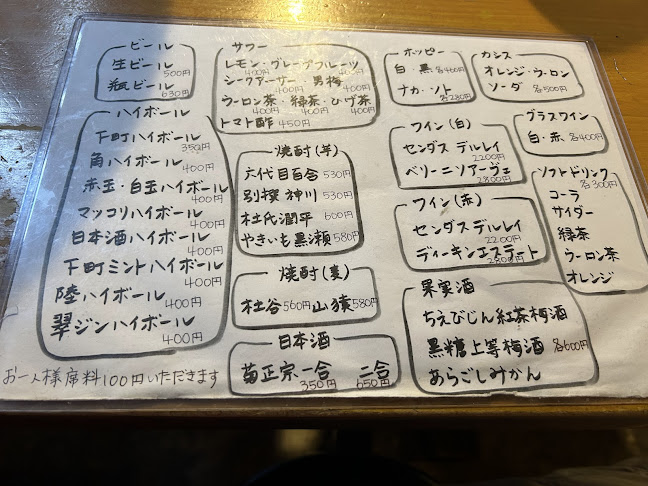 ビール
生ビール
500円
瓶ビール
630円
ハイボール
下町ハイボール
350円
角ハイボール
400円
赤玉・白玉ハイボール
400円
マッコリハイボール
400円
日本酒ハイボール
400円
下町ミントハイボール
400円
陸ハイボール
400円
翠ジンハイボール
400円
お一人様席料100円いただきます
サワー
レモン・グレープフルーツ
400円 400円
シークアーサー・男梅
400円 400円
ウーロン茶・緑茶・ひげ茶
400円 400円 400円
トマト酢 450円
焼酎(芋)
六代目百合 530円
別撰神川 530円
杜氏潤平 600円
やきいも黒瀬 580円
焼酎(麦)
杜谷 560円 山猿 580円
日本酒
菊正宗 一合 二合
350円 650円
ホッピー
白・黒 各460円
ナカ・ソト 各280円
カシス
オレンジ・ウーロン
ソーダ 各500円
ワイン(白)
センダス デルレイ
2200円
ベリーニソアーヴェ
2800円
グラスワイン
白・赤 各400円
ワイン(赤)
センダスデルレイ
2200円
ディーキンエステイト
2800円
ソフトドリンク
各300円
コーラ
サイダー
緑茶
ウーロン茶
オレンジ
果実酒
ちえびじん紅茶梅酒
黒糖上等梅酒 各600円
あらごしみかん